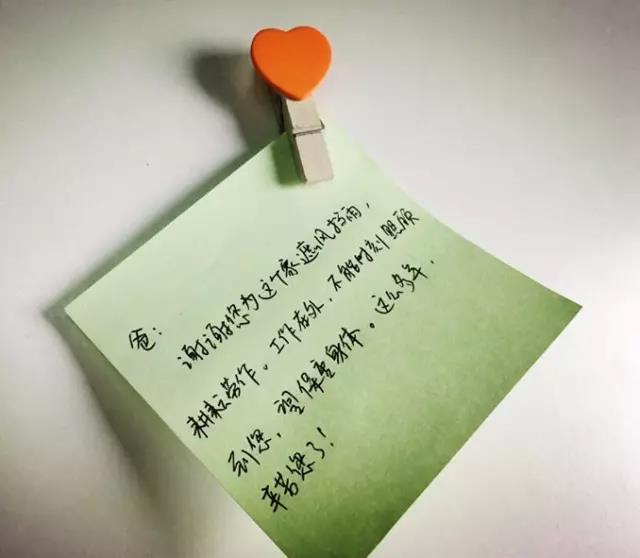 爸：
谢谢您为这个家遮风挡雨，
耕耘劳作。工作在外，不能时刻照顾
到您，望保重身体。这么多年，
辛苦您了！